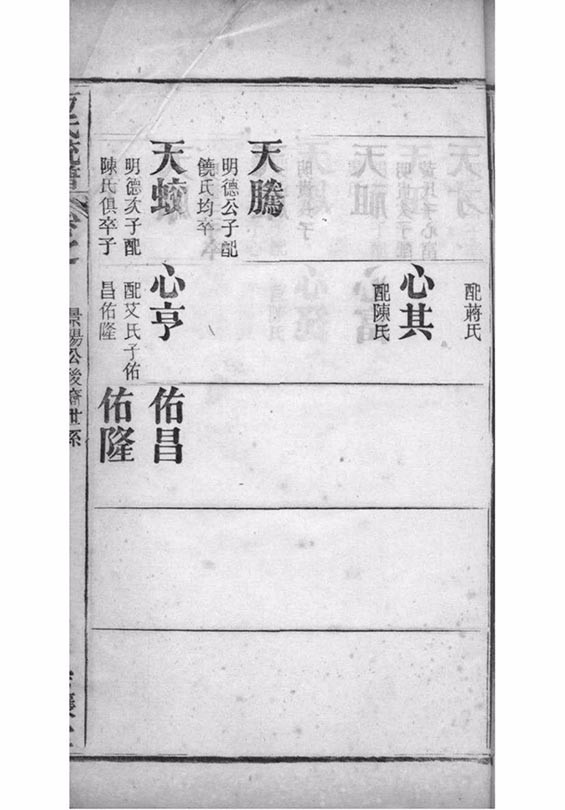 天騰
明德公子配
饒氏均卒
天蛟
明德次子配
陳氏俱卒子
配蔣氏
心其
配陳氏
心亨
配艾氏子佑
昌佑隆
佑昌
佑隆
氏統譜
景陽公後裔世系